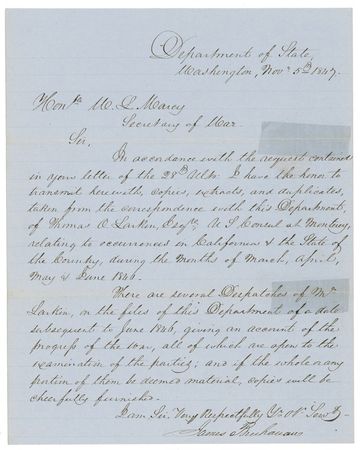 Department of State,
Washington, Nov. 5th 1847.
Honble W. L. Marcy
Secretary of War
Sir.
In accordance with the request contained
in your letter of the 28th Ulto. I have the honor to
transmit herewith, copies, extracts, and duplicates,
taken from the correspondence with this Department,
of Thomas O. Larkin, Esqre, U S Consul at Monterey,
relating to occurrences in California & the State of
the Country, during the months of March, April,
May & June 1846.
There are several Despatches of Mr
Larkin, in the files of this Department of a date
subsequent to June 1846, giving an account of the
progress of the war, all of which are open to the
examination of the parties; and if the whole or any
portion of them be deemed material, copies will be
cheerfully furnished.
I am Sir, Very Respectfully Yr. Ob. Servt
James Buchanan